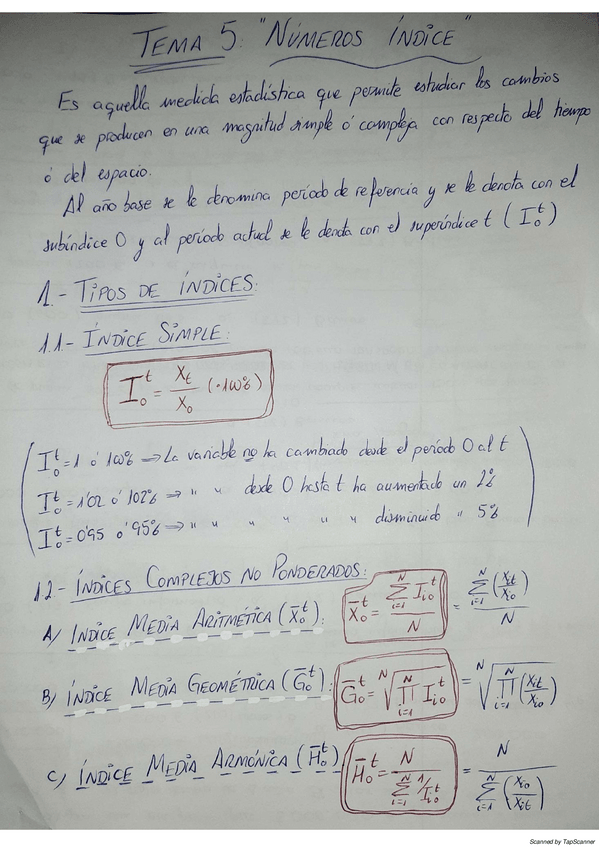 TEMA 5: "NÚMEROS ÍNDICE"
Es aquella medida estadística que permite estudiar los cambios
que se producen en una magnitud simple ó compleja con respecto del tiempo
ó del espacio.
Al año base se le denomina período de referencia y se le denota con el
subíndice 0 y al período actual se le denota con el superíndice t (I₀ᵗ)
1.- TIPOS DE ÍNDICES:
1.1.- ÍNDICE SIMPLE:
I₀ᵗ = Xₜ/X₀ (·100%)
I₀ᵗ = 1 ó 100% ⇒ La variable no ha cambiado desde el período 0 al t
I₀ᵗ = 1'02 ó 102% ⇒ " " desde 0 hasta t ha aumentado un 2%
I₀ᵗ = 0'95 ó 95% ⇒ " " " " " " disminuido " 5%
1.2.- ÍNDICES COMPLEJOS NO PONDERADOS:
A) ÍNDICE MEDIA ARITMÉTICA (X̄₀ᵗ): X̄₀ᵗ = (∑ᵢ₌₁ᴺ Iᵢ₀ᵗ)/N = (∑ᵢ₌₁ᴺ (xᵢₜ/xᵢ₀))/N
B) ÍNDICE MEDIA GEOMÉTRICA (Ḡ₀ᵗ): Ḡ₀ᵗ = ᴺ√(∏ᵢ₌₁ᴺ Iᵢ₀ᵗ) = ᴺ√(∏ᵢ₌₁ᴺ (xᵢₜ/xᵢ₀))
C) ÍNDICE MEDIA ARMÓNICA (H̄₀ᵗ) H̄₀ᵗ = N/(∑ᵢ₌₁ᴺ 1/Iᵢ₀ᵗ) = N/(∑ᵢ₌₁ᴺ (xᵢ₀/xᵢₜ))
Scanned by TapScanner